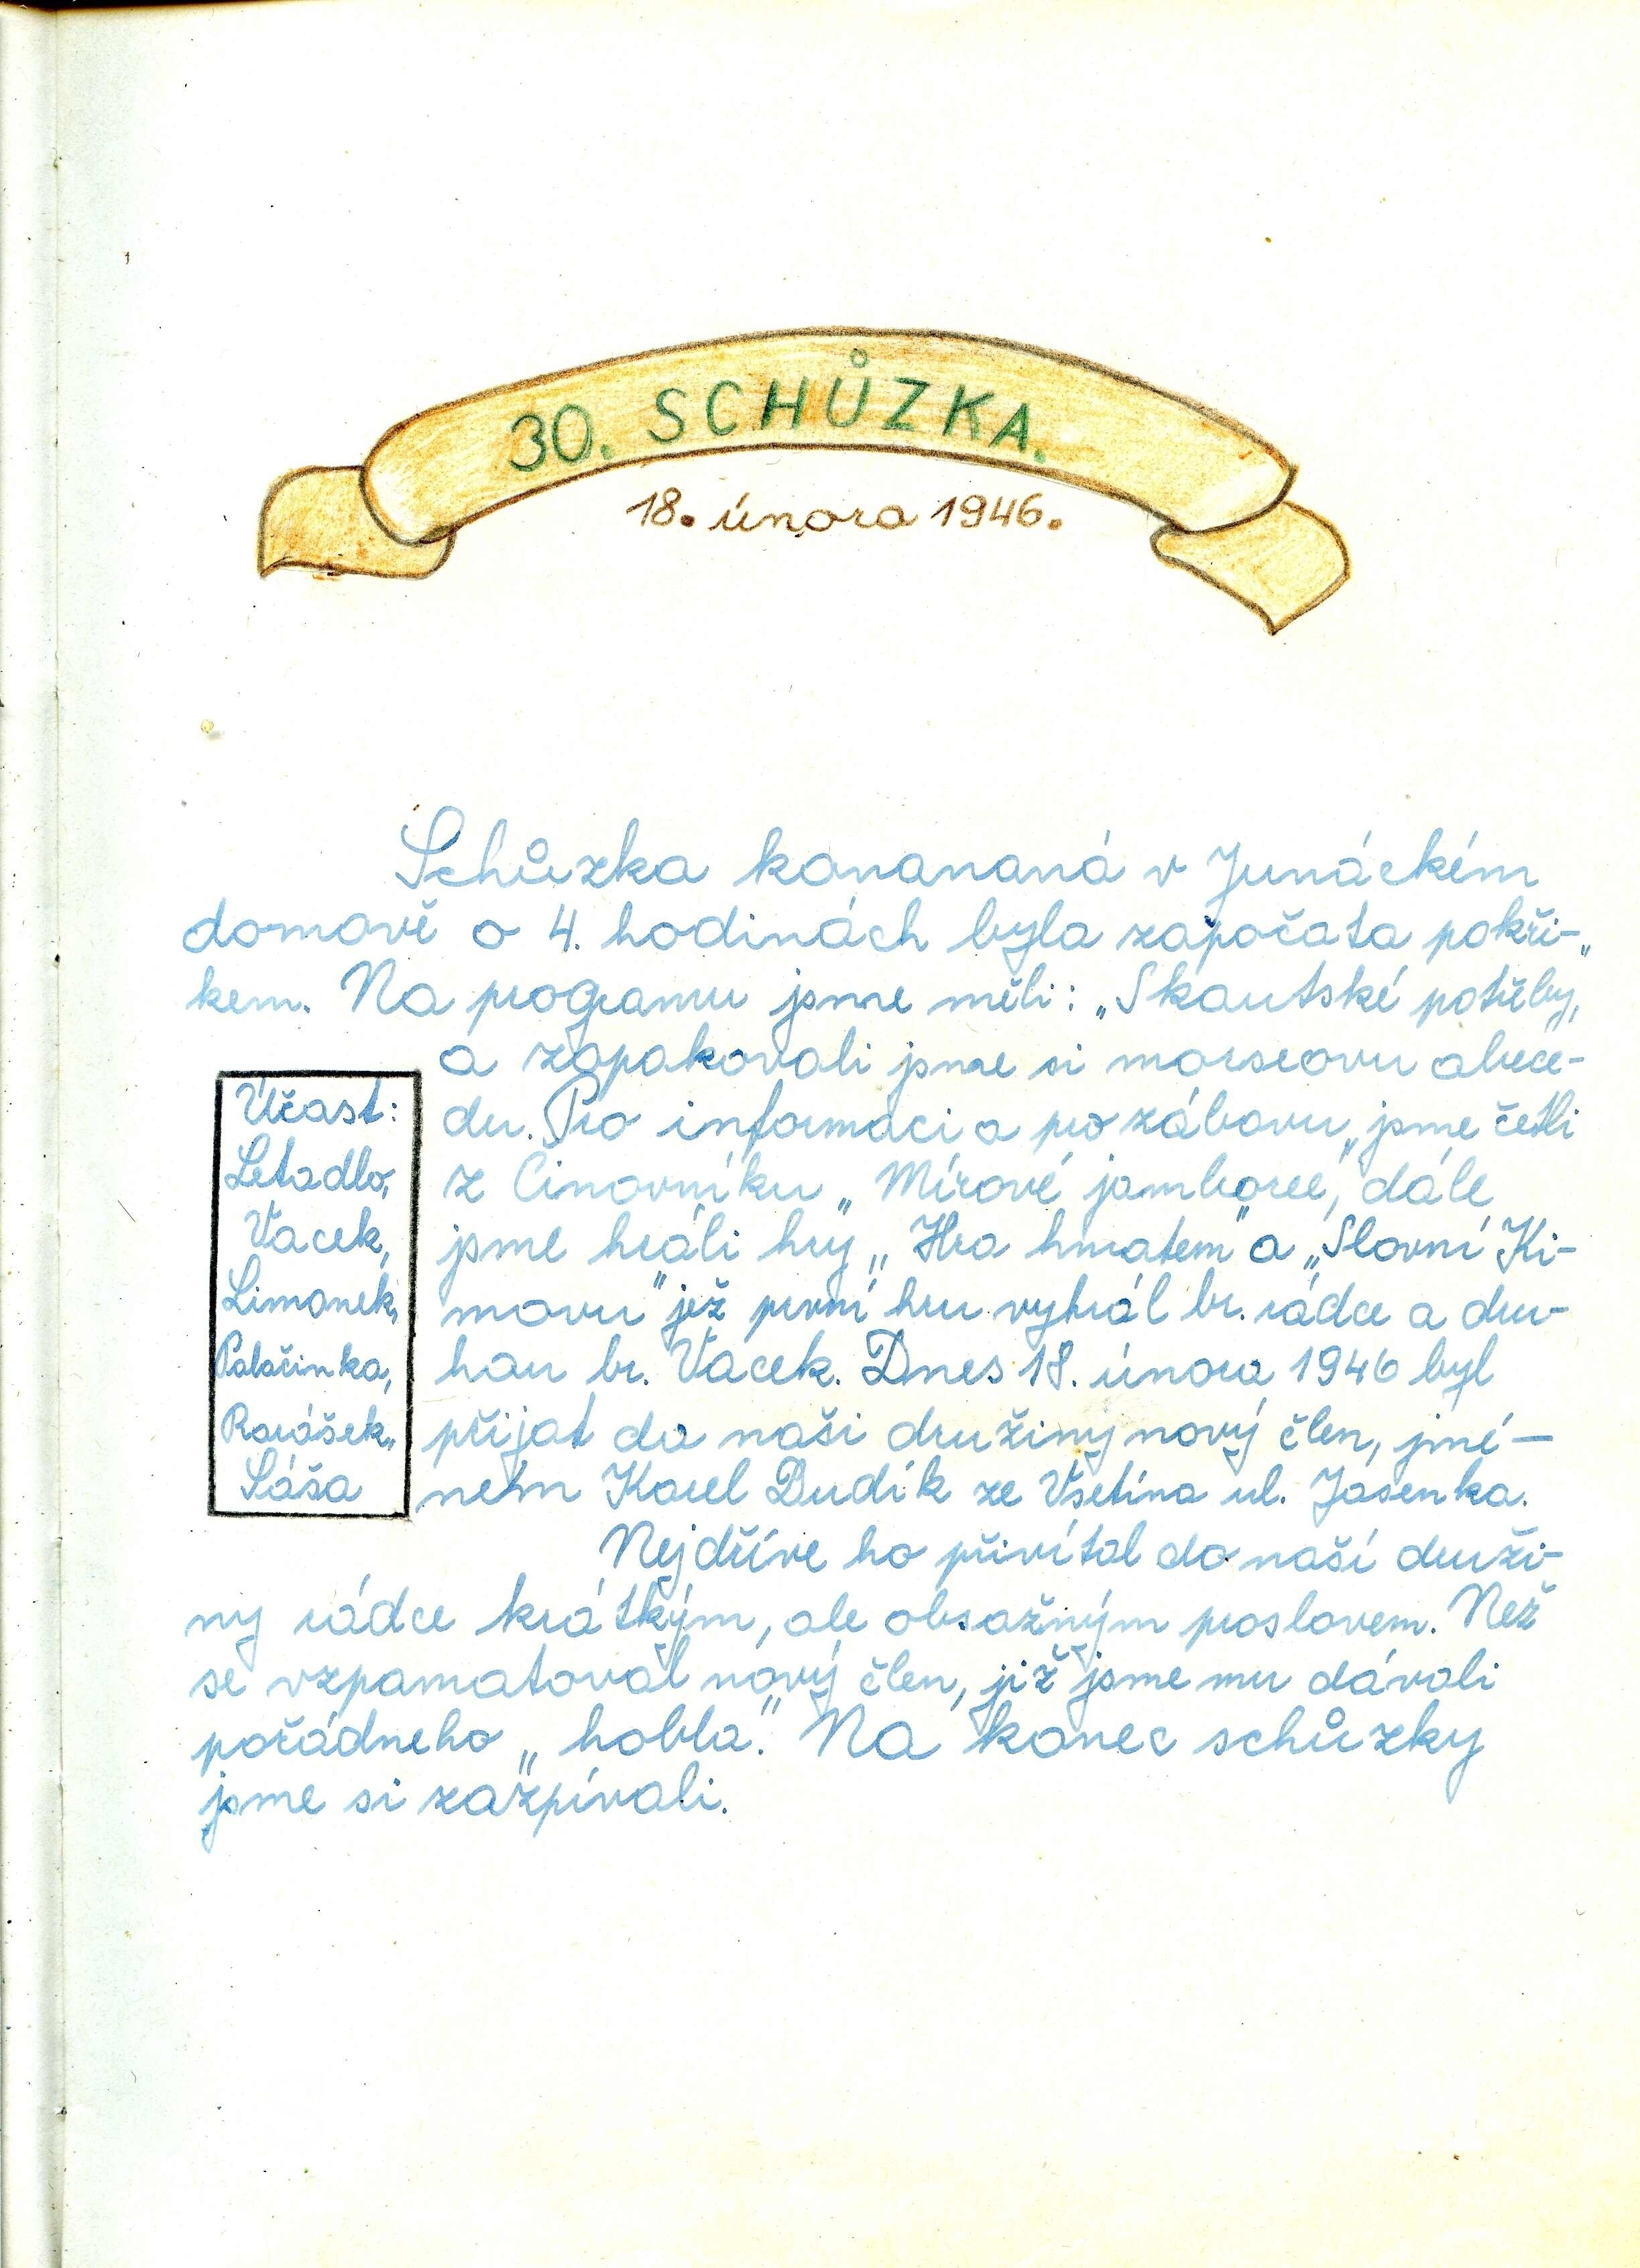 30. SCHŮZKA.
18. února 1946.
Schůzka konananá v Junáckém
domově o 4. hodinách byla započata pokři-
kem. Na programu jsme měli: „Skautské potřeby"
a zopakovali jsme si morseovu abece-
du. Pro informaci a pro zábavu jsme četli
z Činovníku „Mírové jamboreé", dále
jsme hráli hry „Hra hmatem" a „Slovní Ki-
movu" jež první hru vyhrál br. rádce a dru-
hou br. Vacek. Dnes 18. února 1946 byl
přijat do naši družiny nový člen, jmé-
nem Karel Dudík ze Vsetína ul. Jasenka.
Účast:
Letadlo,
Vacek,
Limonek,
Palačinka,
Rarášek,
Sáša
Nejdříve ho přivítal do naší druži-
ny rádce krátkým, ale obsažným proslovem. Než
se vzpamatoval nový člen, již jsme mu dávali
pořádneho „hobla". Na konec schůzky
jsme si zazpívali.